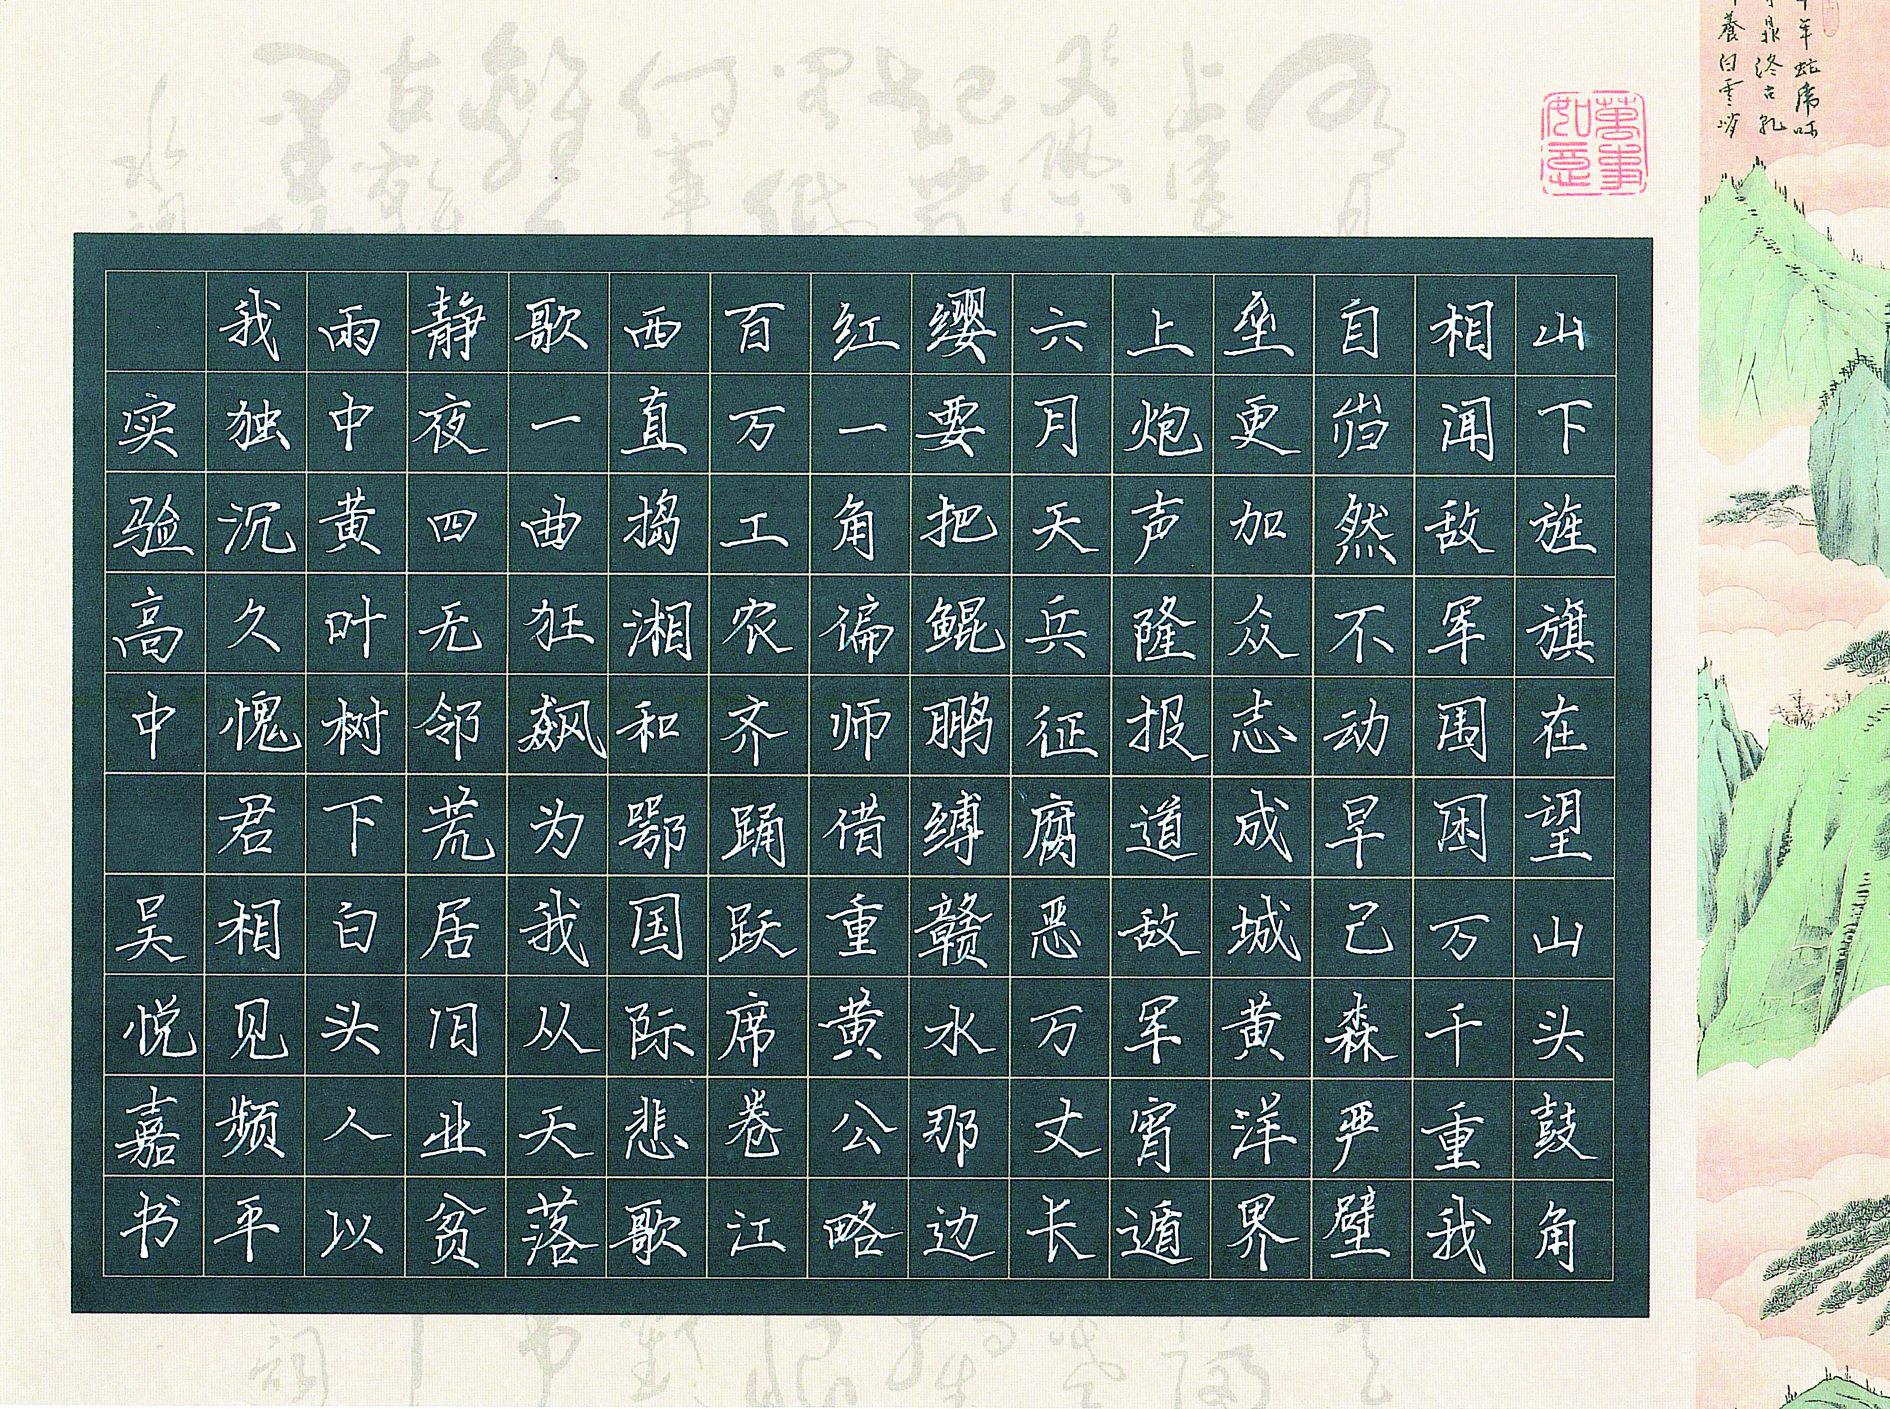 萬事如意
山下旌旗在望山头鼓角
相闻敌军围困万千重我
自岿然不动早己森严壁
垒更加众志成城黄洋界
上炮声隆报道敌军宵遁
六月天兵征腐恶万丈长
缨要把鲲鹏缚赣水那边
红一角偏师借重黄公略
百万工农齐踊跃席卷江
西直捣湘和鄂国际悲歌
歌一曲狂飙为我从天落
静夜四无邻荒居旧业贫
雨中黄叶树下白头人以
我独沉久愧君相见频平
实验高中 吴悦嘉书